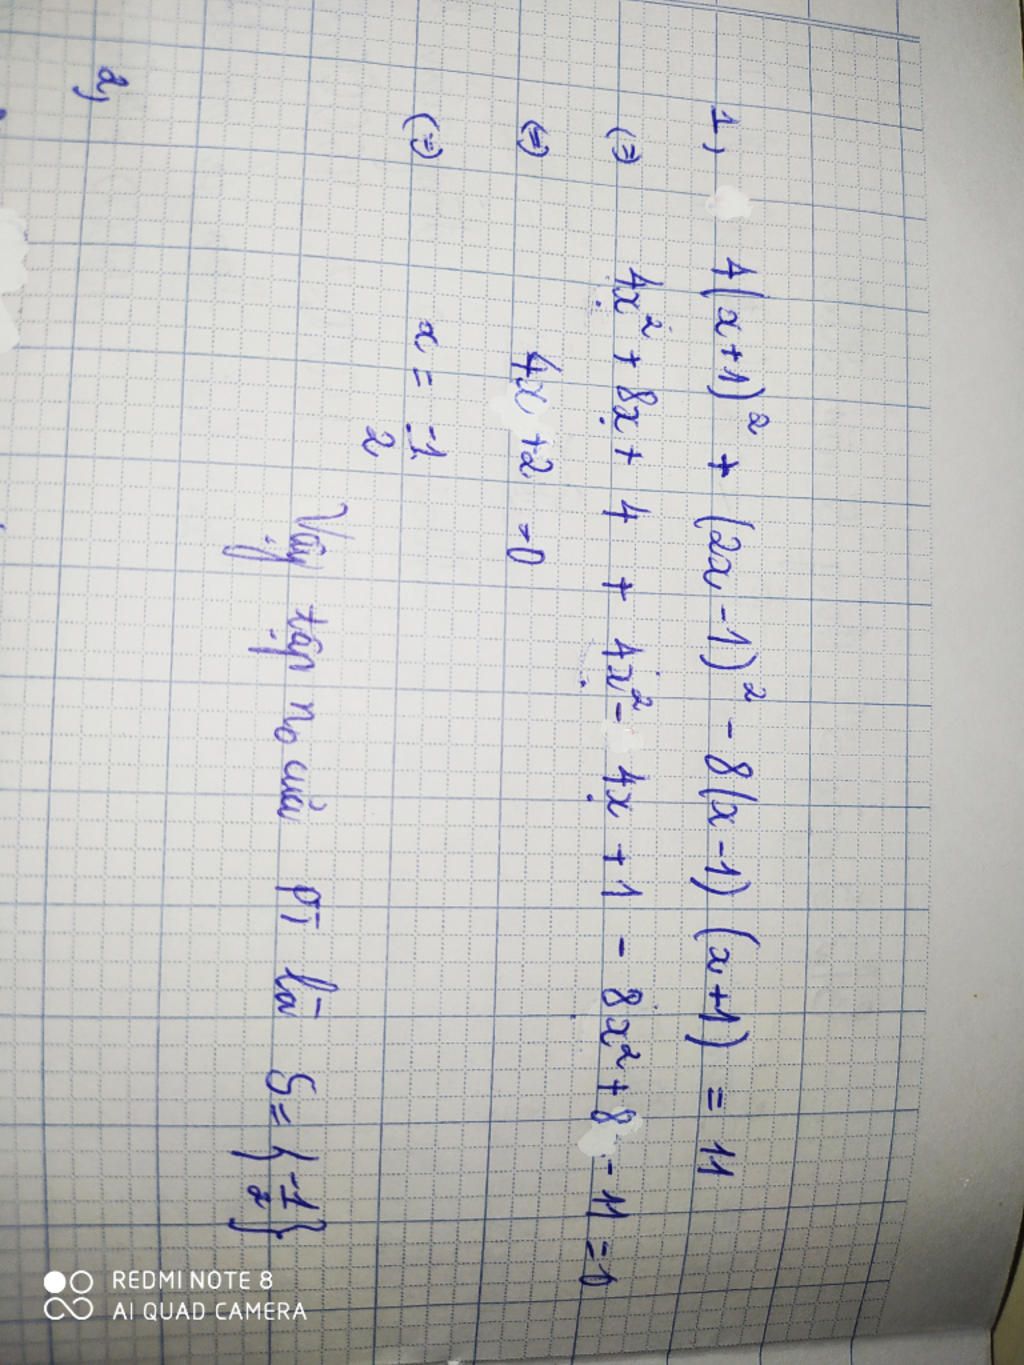 1, 4(x+1)² + (2x-1)² - 8(x-1)(x+1) = 11
(=) 4x² + 8x + 4 + 4x² - 4x + 1 - 8x² + 8 - 11 = 0
(=) 4x + 2 = 0
(=) x = -1/2
Vậy tập no của pT là S = {-1/2}
2,
REDMI NOTE 8
AI QUAD CAMERA